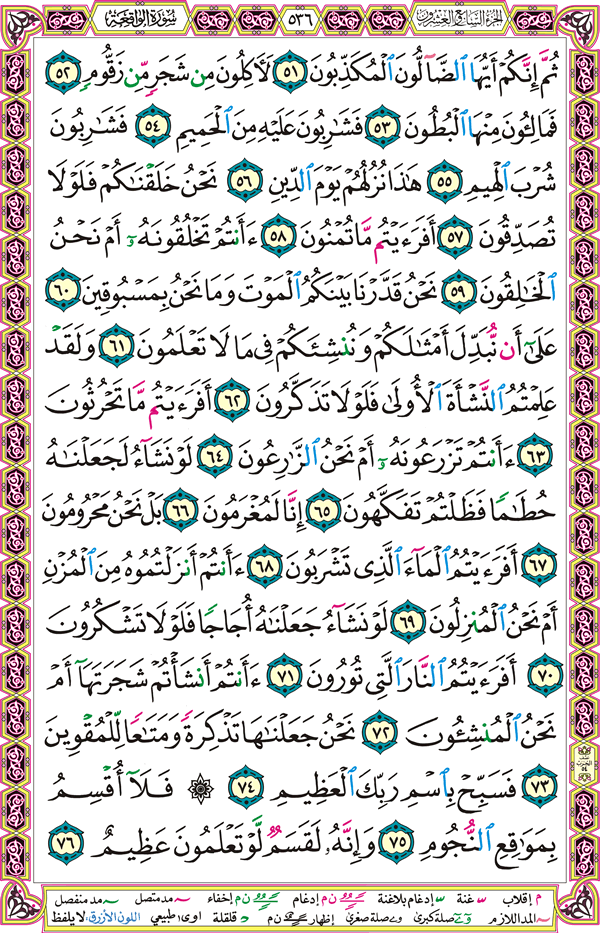 سورة الواقعة ٥٣٦ الجزء السابع والعشرون
ثُمَّ إِنَّكُمْ أَيُّهَا الضَّآلُّونَ الْمُكَذِّبُونَ ٥١ لَأَكِلُونَ مِن شَجَرٍ مِّن زَقُّومٍ ٥٢
فَمَالِئُونَ مِنْهَا الْبُطُونَ ٥٣ فَشَارِبُونَ عَلَيْهِ مِنَ الْحَمِيمِ ٥٤ فَشَارِبُونَ
شُرْبَ الْهِيمِ ٥٥ هَٰذَا نُزُلُهُمْ يَوْمَ الدِّينِ ٥٦ نَحْنُ خَلَقْنَاكُمْ فَلَوْلَا
تُصَدِّقُونَ ٥٧ أَفَرَءَيْتُم مَّا تُمْنُونَ ٥٨ ءَأَنتُمْ تَخْلُقُونَهُۥٓ أَمْ نَحْنُ
الْخَالِقُونَ ٥٩ نَحْنُ قَدَّرْنَا بَيْنَكُمُ الْمَوْتَ وَمَا نَحْنُ بِمَسْبُوقِينَ ٦٠
عَلَىٰٓ أَن نُّبَدِّلَ أَمْثَالَكُمْ وَنُنشِئَكُمْ فِي مَا لَا تَعْلَمُونَ ٦١ وَلَقَدْ
عَلِمْتُمُ النَّشْأَةَ الْأُولَىٰ فَلَوْلَا تَذَكَّرُونَ ٦٢ أَفَرَءَيْتُم مَّا تَحْرُثُونَ
٦٣ ءَأَنتُمْ تَزْرَعُونَهُۥٓ أَمْ نَحْنُ الزَّارِعُونَ ٦٤ لَوْ نَشَآءُ لَجَعَلْنَاهُ
حُطَامًا فَظَلْتُمْ تَفَكَّهُونَ ٦٥ إِنَّا لَمُغْرَمُونَ ٦٦ بَلْ نَحْنُ مَحْرُومُونَ
٦٧ أَفَرَءَيْتُمُ الْمَآءَ الَّذِي تَشْرَبُونَ ٦٨ ءَأَنتُمْ أَنزَلْتُمُوهُ مِنَ الْمُزْنِ
أَمْ نَحْنُ الْمُنزِلُونَ ٦٩ لَوْ نَشَآءُ جَعَلْنَاهُ أُجَاجًا فَلَوْلَا تَشْكُرُونَ
٧٠ أَفَرَءَيْتُمُ النَّارَ الَّتِي تُورُونَ ٧١ ءَأَنتُمْ أَنشَأْتُمْ شَجَرَتَهَآ أَمْ
نَحْنُ الْمُنشِئُونَ ٧٢ نَحْنُ جَعَلْنَاهَا تَذْكِرَةً وَمَتَاعًا لِّلْمُقْوِينَ
٧٣ فَسَبِّحْ بِاسْمِ رَبِّكَ الْعَظِيمِ ٧٤ ۞ فَلَآ أُقْسِمُ
بِمَوَاقِعِ النُّجُومِ ٧٥ وَإِنَّهُۥ لَقَسَمٌ لَّوْ تَعْلَمُونَ عَظِيمٌ ٧٦
م إقلاب غنة إدغام بلاغنة ن م إدغام ن م إخفاء مد متصل مد منفصل
المد اللازم صلة كبرى صلة صغرى إظهار قلقلة اوى: طبيعي اللون الأزرق: لا يلفظ